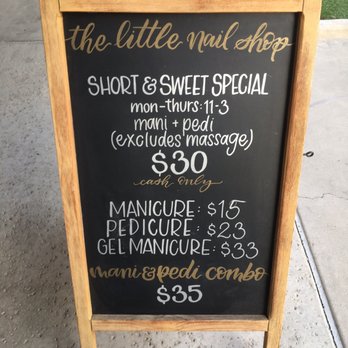 the little nail shop
SHORT & SWEET SPECIAL
mon-thurs: 11-3
mani + pedi
(excludes massage)
$30
cash only
MANICURE: $15
PEDICURE: $23
GEL MANICURE: $33
mani & pedi combo
$35